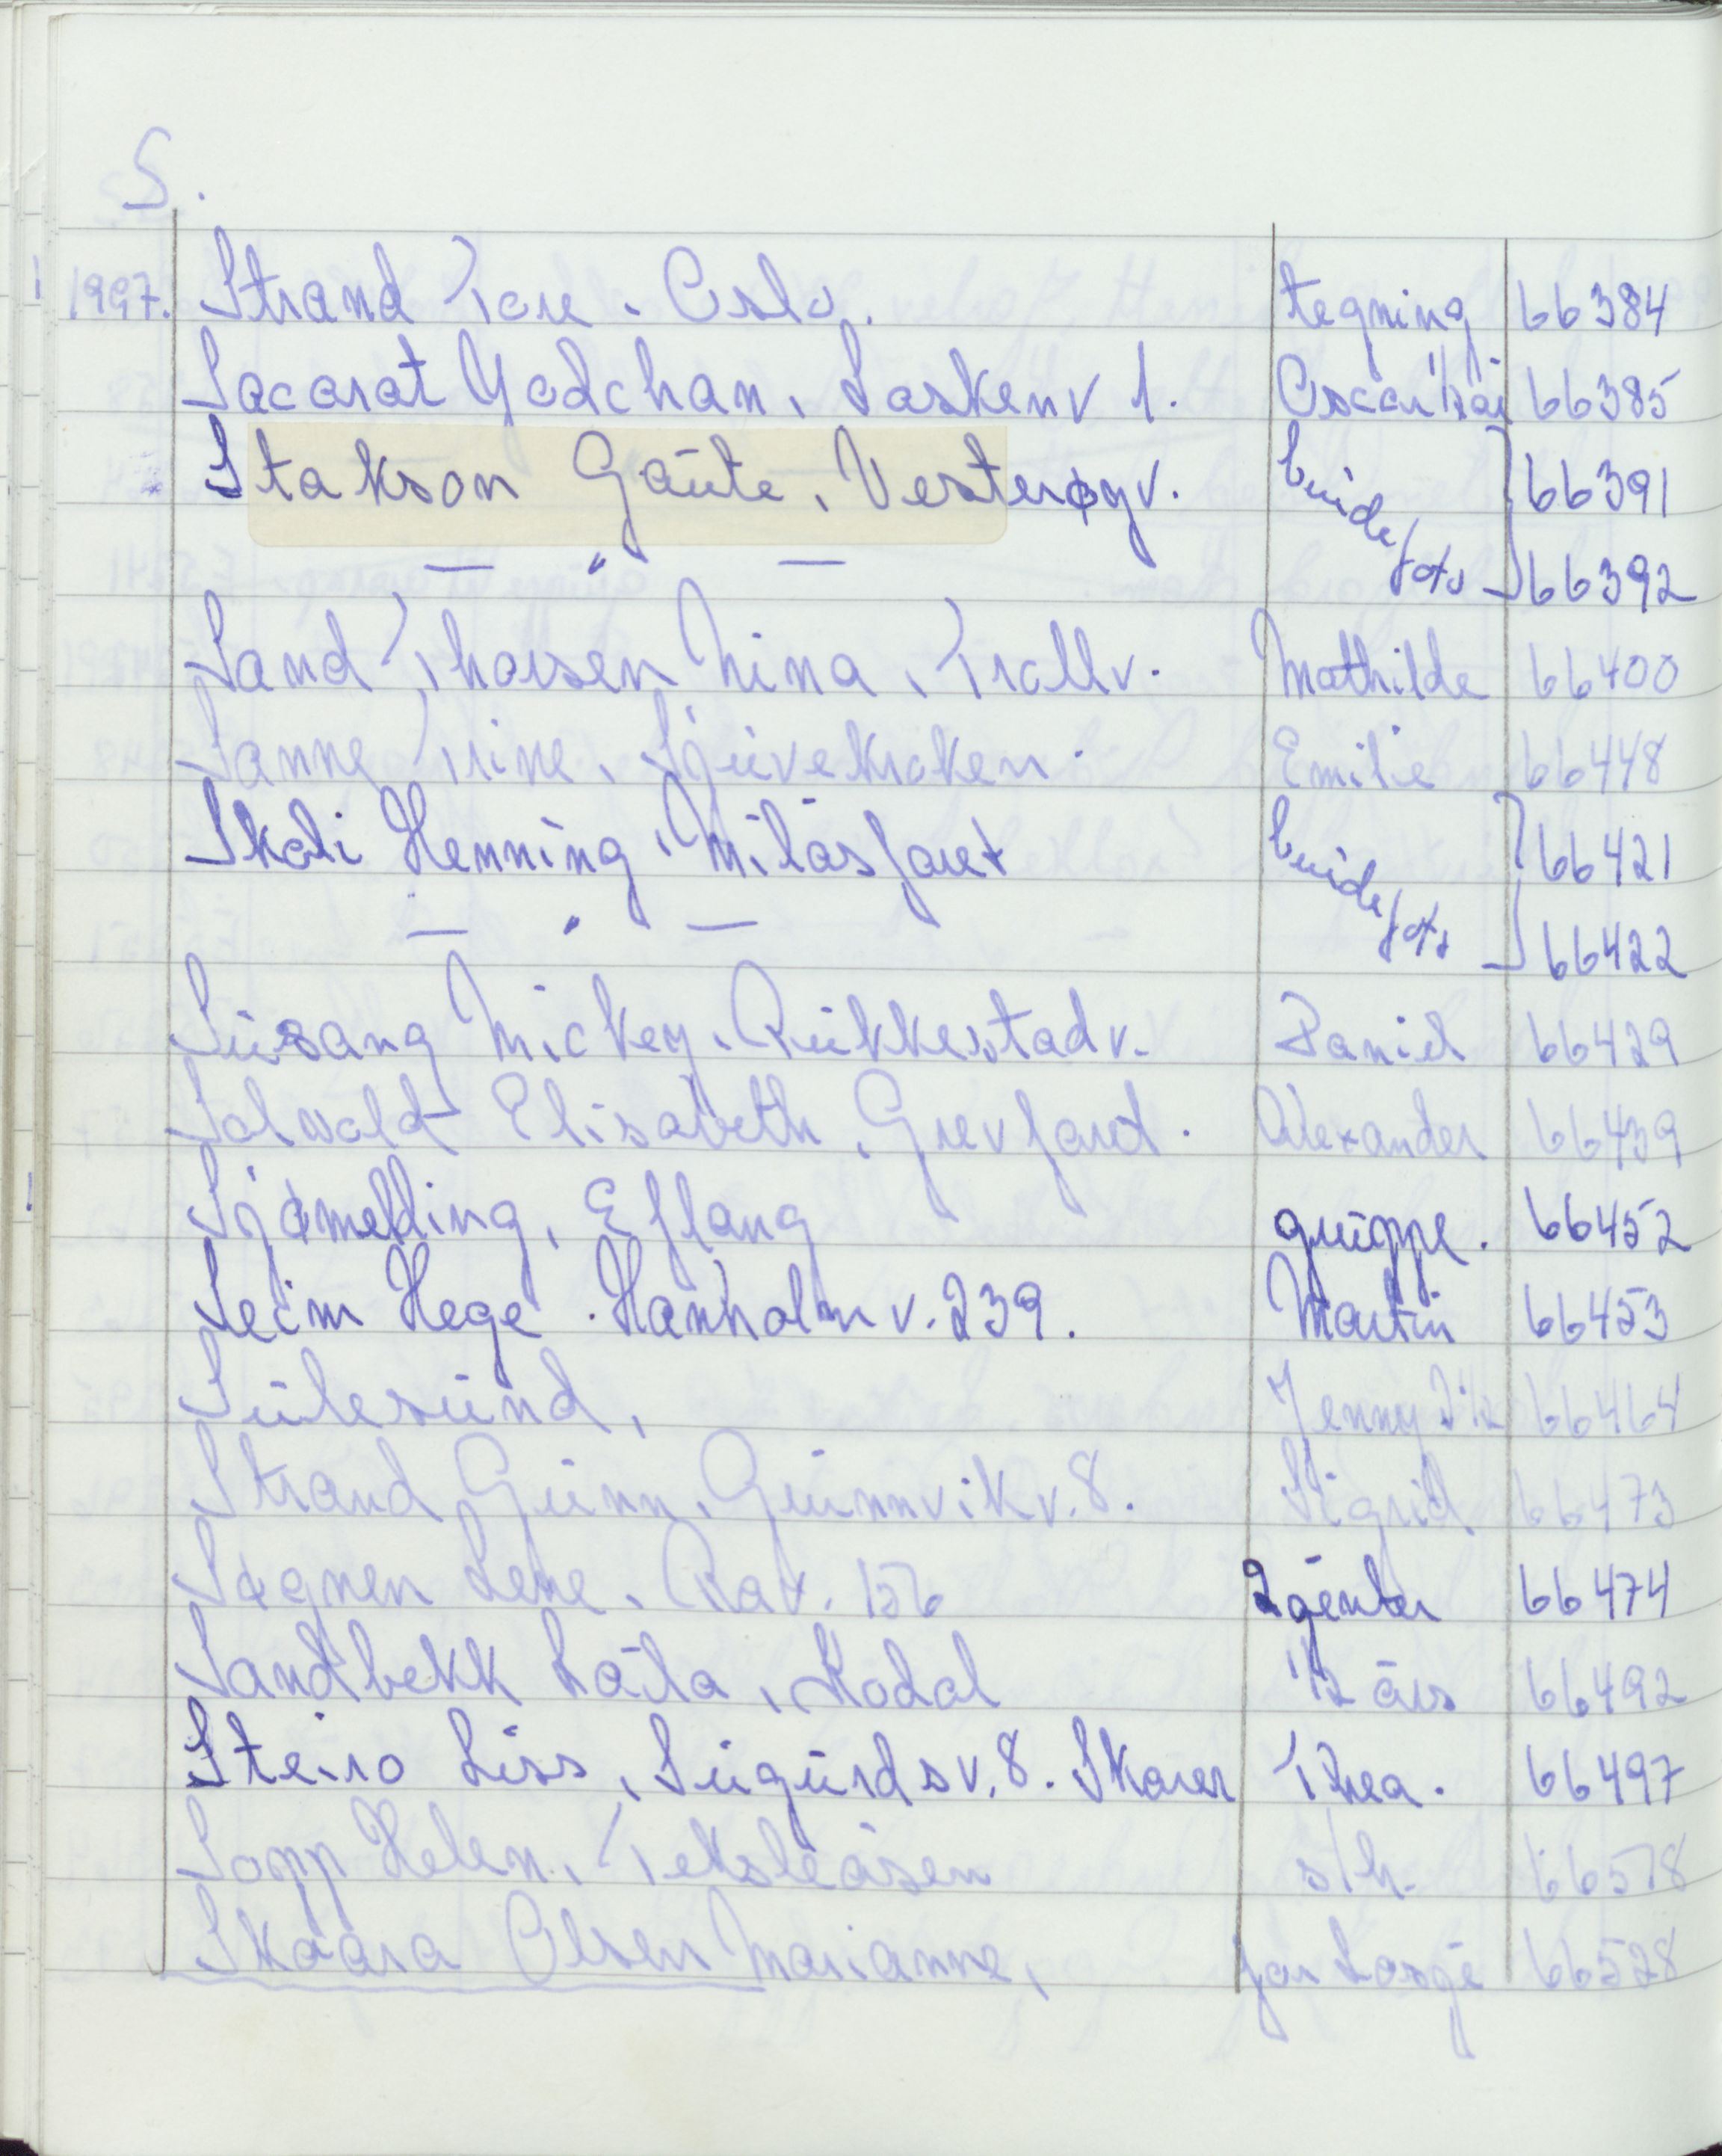 S.
1997. Strand Tore. Oslo. tegning 66384
Sacarat Yodchan, Laskenv 1. Oscar 1/2 år 66385
Stakson Gaute, Vesterøyv. brudefoto 66391
— " — 66392
Sand Thorsen Nina, Trollv. Mathilde 66400
Sanne Trine, Sjuvekroken. Emilie 66448
Skoli Henning, Milåsfaret brudefoto 66421
— " — 66422
Susang Mickey. Rukkestadv. Daniel 66429
Solvold Elisabeth, Grevfaret. Alexander 66439
Sjømelling, Eftang gruppe. 66452
Seim Hege. Hauholmv. 239. Martin 66453
Sulesund, Jenny 66464
Strand Gunn, Gunnvikv. 8. Sigrid 66473
Søgnen Lene, Rav. 156 2 jenter 66474
Sandbekk Laila, Kodal 1/2 års 66492
Steiro Liss, Sigurdsv. 8. Skarer Thea. 66497
Sopp Helen, Teksleåsen s/h. 66518
Skaara Olsen Marianne, 66528